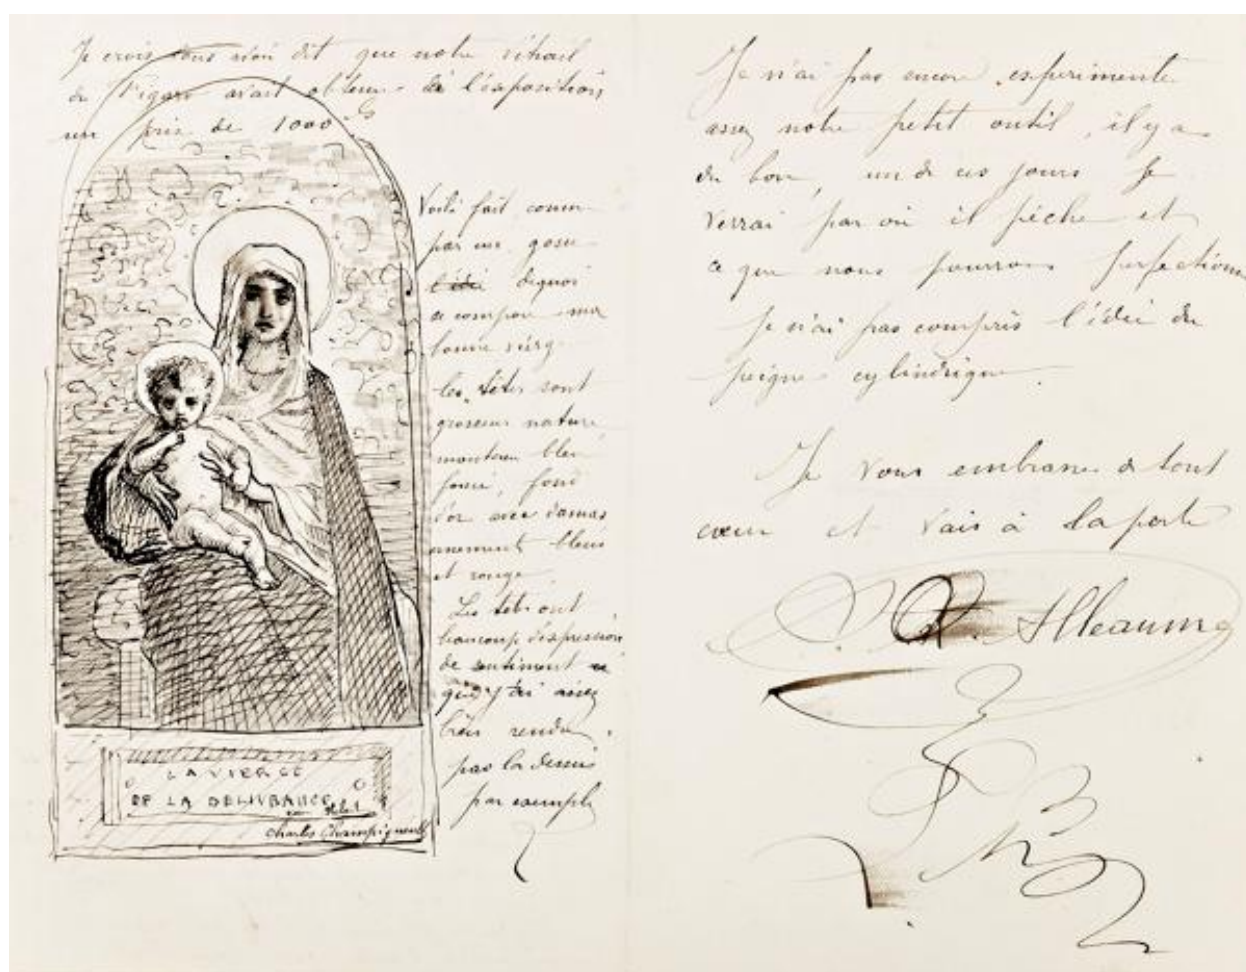 Je crois vous avoir dit que notre vitrail
du Figaro avait obtenu à l'exposition
un prix de 1000
Voilà fait comme
par un gosse
l'idée de quoi
se compose ma
bonne vierge
les têtes sont
grosseur nature
manteau bleu
foncé, fond
d'or avec damas
ornement bleus
et rouge
Les têtes ont
beaucoup d'expression
de sentiment
que j'ai assez
bien rendu,
pas là dessus
par exemple
LA VIERGE
DE LA DELIVRANCE
Charles Champigneulle
Je n'ai pas encore experimenté
assez notre petit outil, il y a
du bon, un de ces jours je
verrai par où il pèche et
ce que nous pourrons perfectionner
Je n'ai pas compris l'idée du
peigne cylindrique.
Je vous embrasse de tout
cœur et vais à la poste
Alleaume